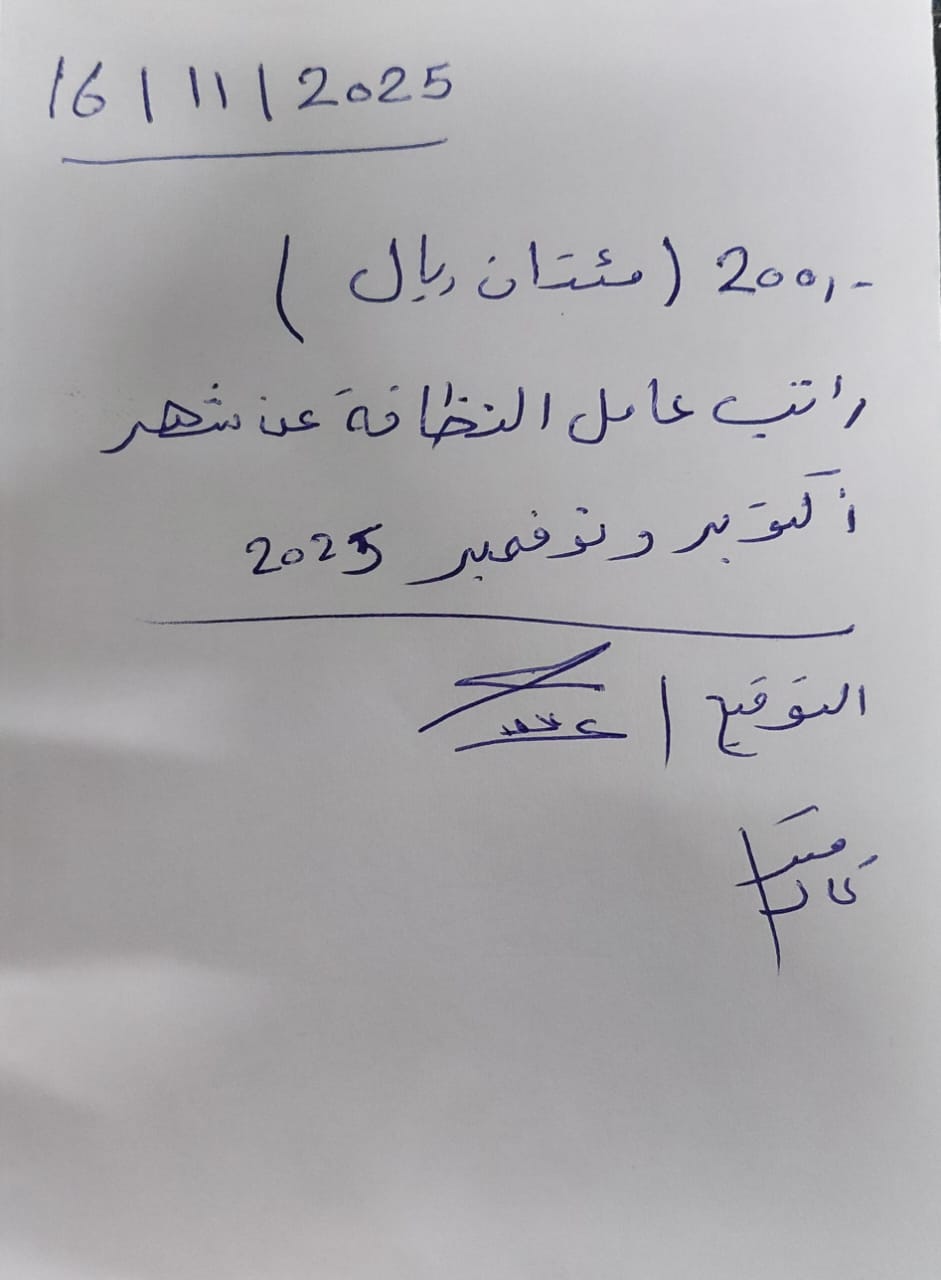 16/11/2025
200,- (مئتان ريال)
راتب عامل النظافة عن شهر
أكتوبر ونوفمبر 2025
التوقيع /